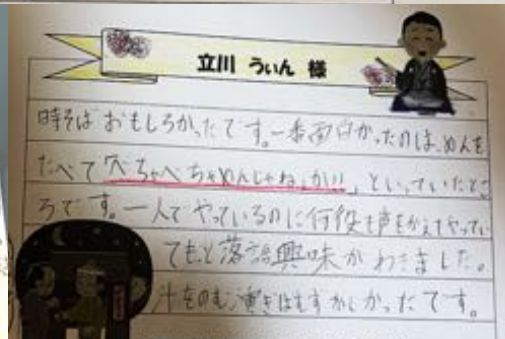 立川 うぃん 様
時そばおもしろかったです。一番面白かったのは、めんを
たべて「べちゃべちゃめんじゃねぇか!!」といっていたとこ
ろです。一人でやっているのに何役も声をかえてやってい
てもっと落語興味がわきました。
汁をのむ動きはむずかしかったです。